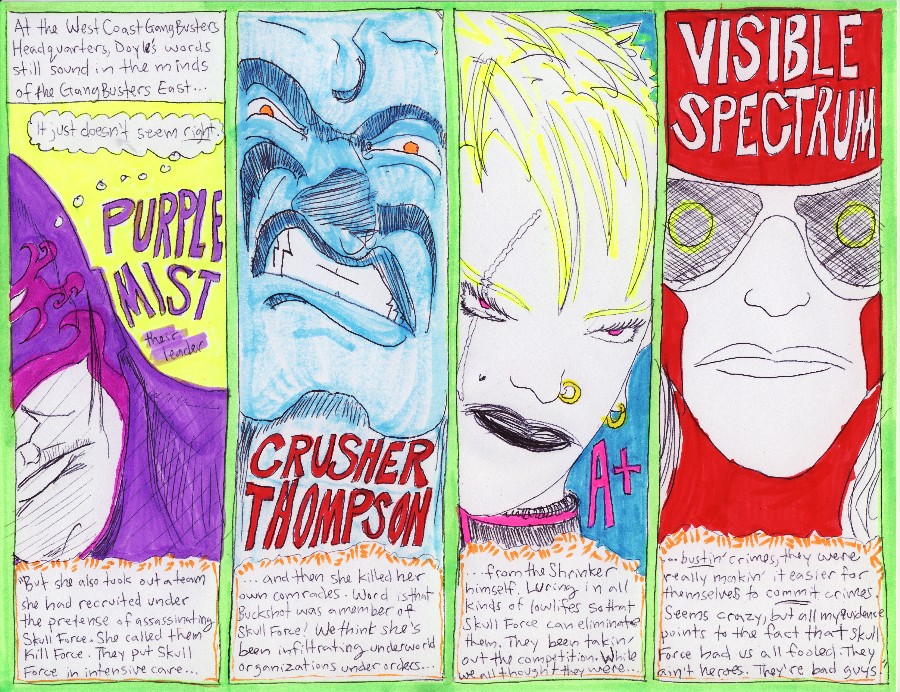 At the West Coast GangBusters
Headquarters, Doyle's words
still sound in the minds
of the GangBusters East...
It just doesn't seem right.
PURPLE
MIST
their
leader
"But she also took out a team
she had recruited under
the pretense of assassinating
Skull Force. She called them
Kill Force. They put Skull
Force in intensive care...
CRUSHER
THOMPSON
...and then she killed her
own comrades. Word is that
Buckshot was a member of
Skull Force! We think she's
been infiltrating underworld
organizations under orders...
A+
...from the Shrinker
himself. Luring in all
kinds of lowlifes so that
Skull Force can eliminate
them. They been takin'
out the competition. While
we all thought they were...
VISIBLE
SPECTRUM
...bustin' crimes, they were
really makin' it easier for
themselves to commit crimes.
Seems crazy, but all my evidence
points to the fact that Skull
Force had us all fooled. They
ain't heroes. They're bad guys."